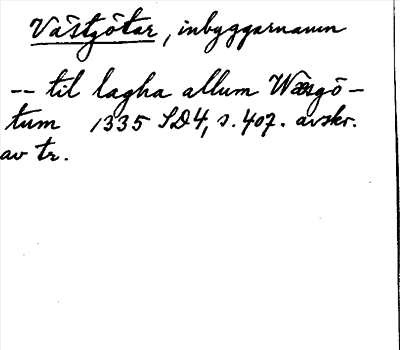 Västjötar, inbyggarnamn
-- til lagha allum Wæsgö-
tum 1335 SD4, s. 407. avskr.
av tr.